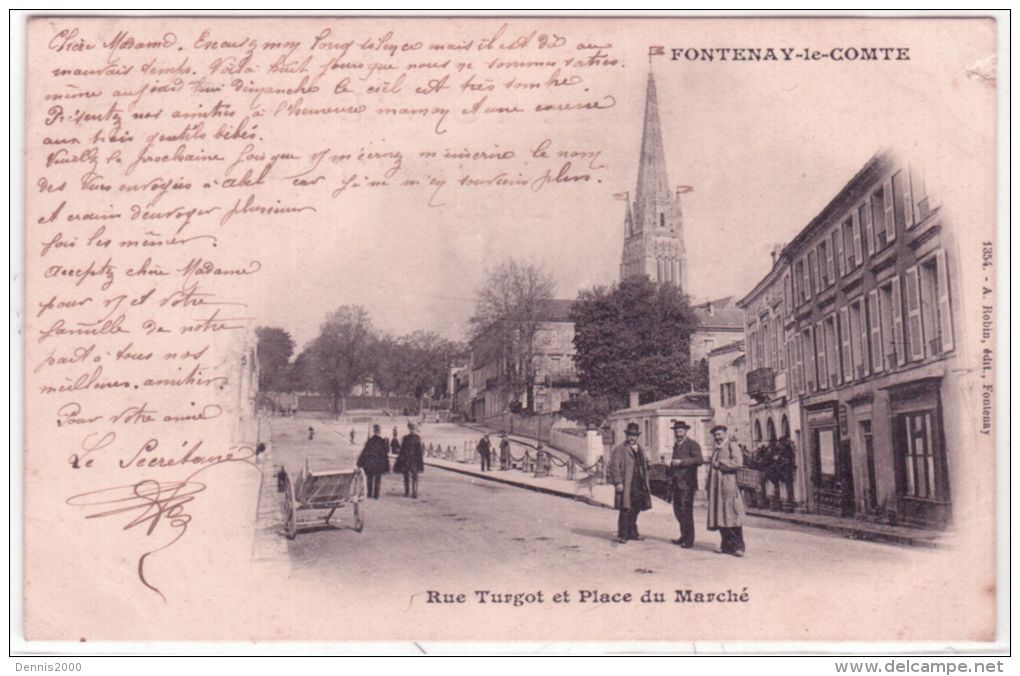 Chère Madame. Excusez mon long silence mais il est dû au
mauvais temps. Voilà huit jours que nous ne sommes sorties.
même aujourd'hui dimanche le ciel est très sombre.
Présentez nos amitiés à l'heureuse maman et une caresse
aux trois gentils bébés.
Veuillez la prochaine fois que m'écrirez m'inscrire le nom
des vues envoyées à Abel car je ne m'en souviens plus.
et crains d'envoyer plusieurs
fois les mêmes.
Acceptez chère Madame
pour et votre
famille de notre
part à tous nos
meilleures amitiés.
Pour votre amie
Le Secrétaire
FONTENAY-le-COMTE
1354. - A. Robin, édit., Fontenay
Rue Turgot et Place du Marché
Dennis2000
www.delcampe.net